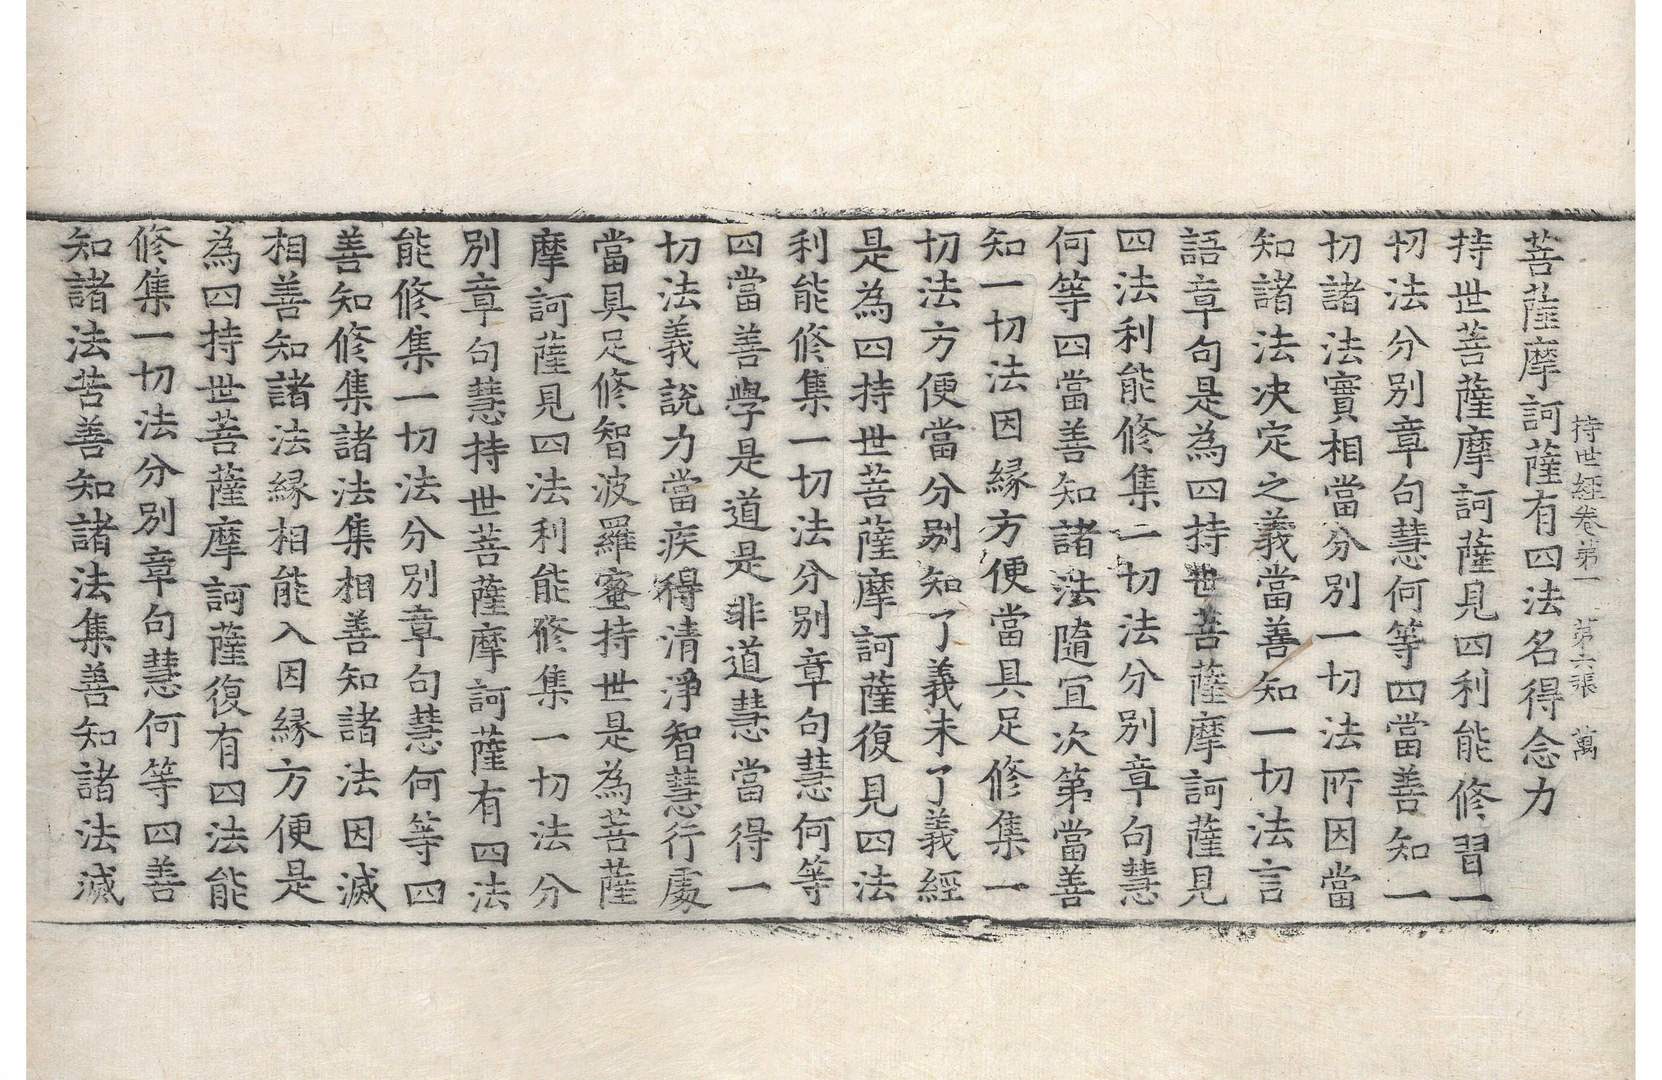 持世經卷第一 第六張 萬
菩薩摩訶薩有四法名得念力
持世菩薩摩訶薩見四利能修習一
切法分別章句慧何等四當善知一
切諸法實相當分別一切法所因當
知諸法决定之義當善知一切法言
語章句是為四持世菩薩摩訶薩見
四法利能修集一切法分別章句慧
何等四當善知諸法隨宜次第當善
知一切法因緣方便當具足修集一
切法方便當分別知了義未了義經
是為四持世菩薩摩訶薩復見四法
利能修集一切法分別章句慧何等
四當善學是道是非道慧當得一
切法義說力當疾得清淨智慧行處
當具足修智波羅蜜持世是為菩薩
摩訶薩見四法利能修集一切法分
別章句慧持世菩薩摩訶薩有四法
能修集一切法分別章句慧何等四
善知修集諸法集相善知諸法因滅
相善知諸法緣相能入因緣方便是
為四持世菩薩摩訶薩復有四法能
修集一切法分別章句慧何等四善
知諸法苦善知諸法集善知諸法滅